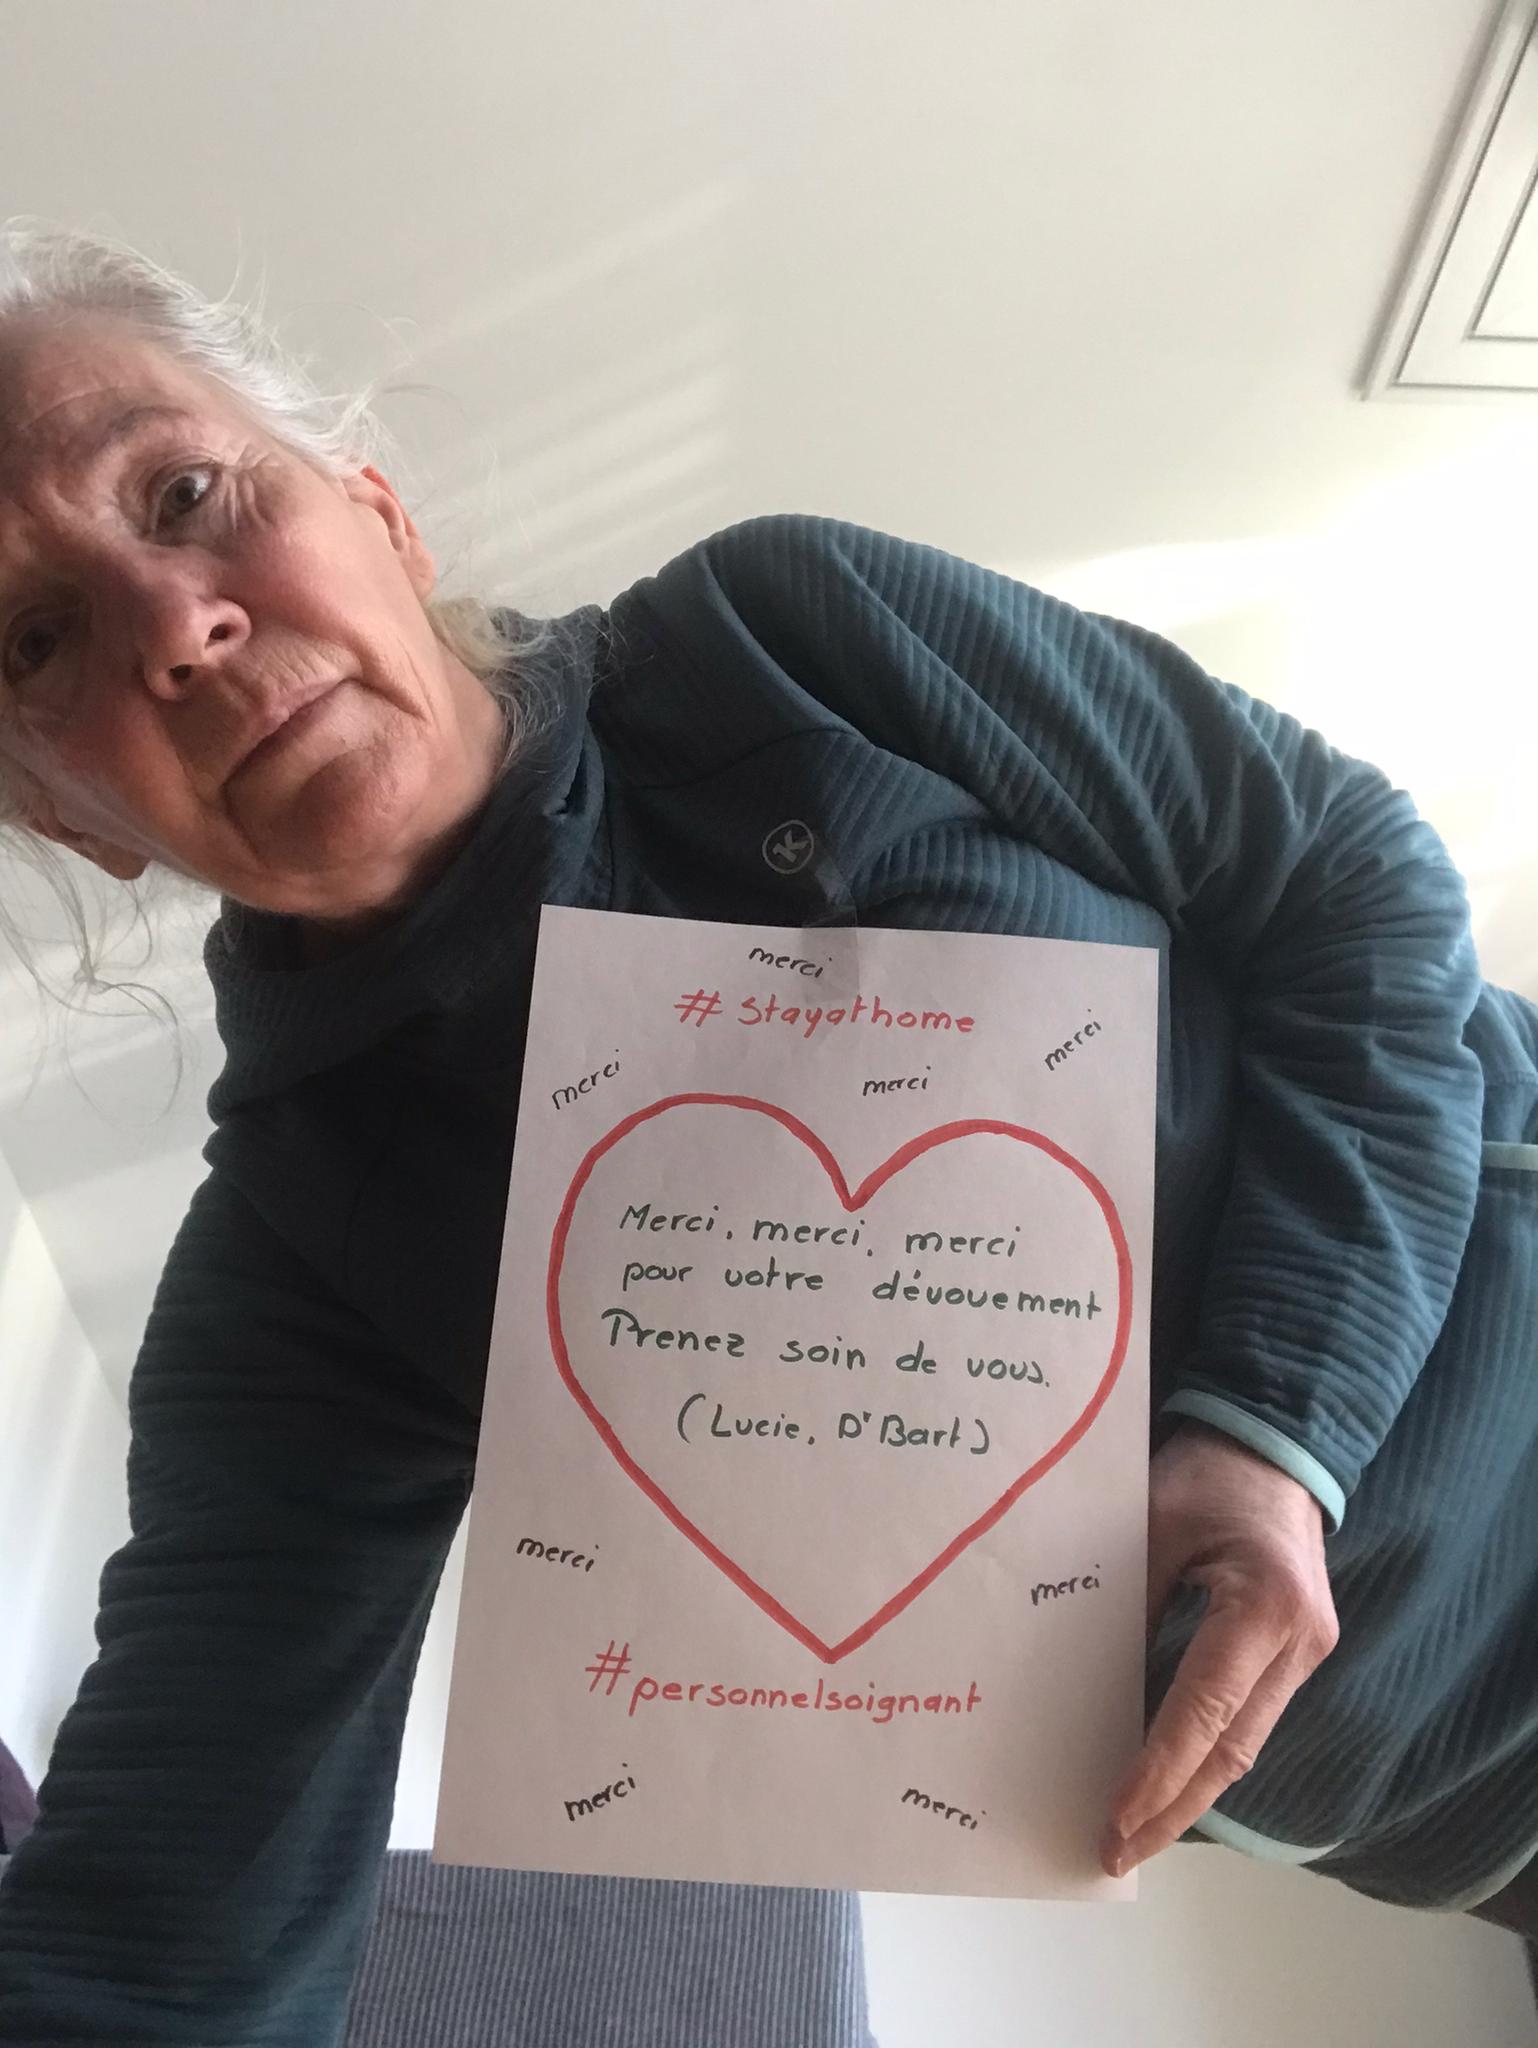 merci
# Stayathome
merci
merci
merci
Merci, merci, merci
pour votre dévouement
Prenez soin de vous.
(Lucie, Dr Bart)
merci
merci
#personnelsoignant
merci
merci
K